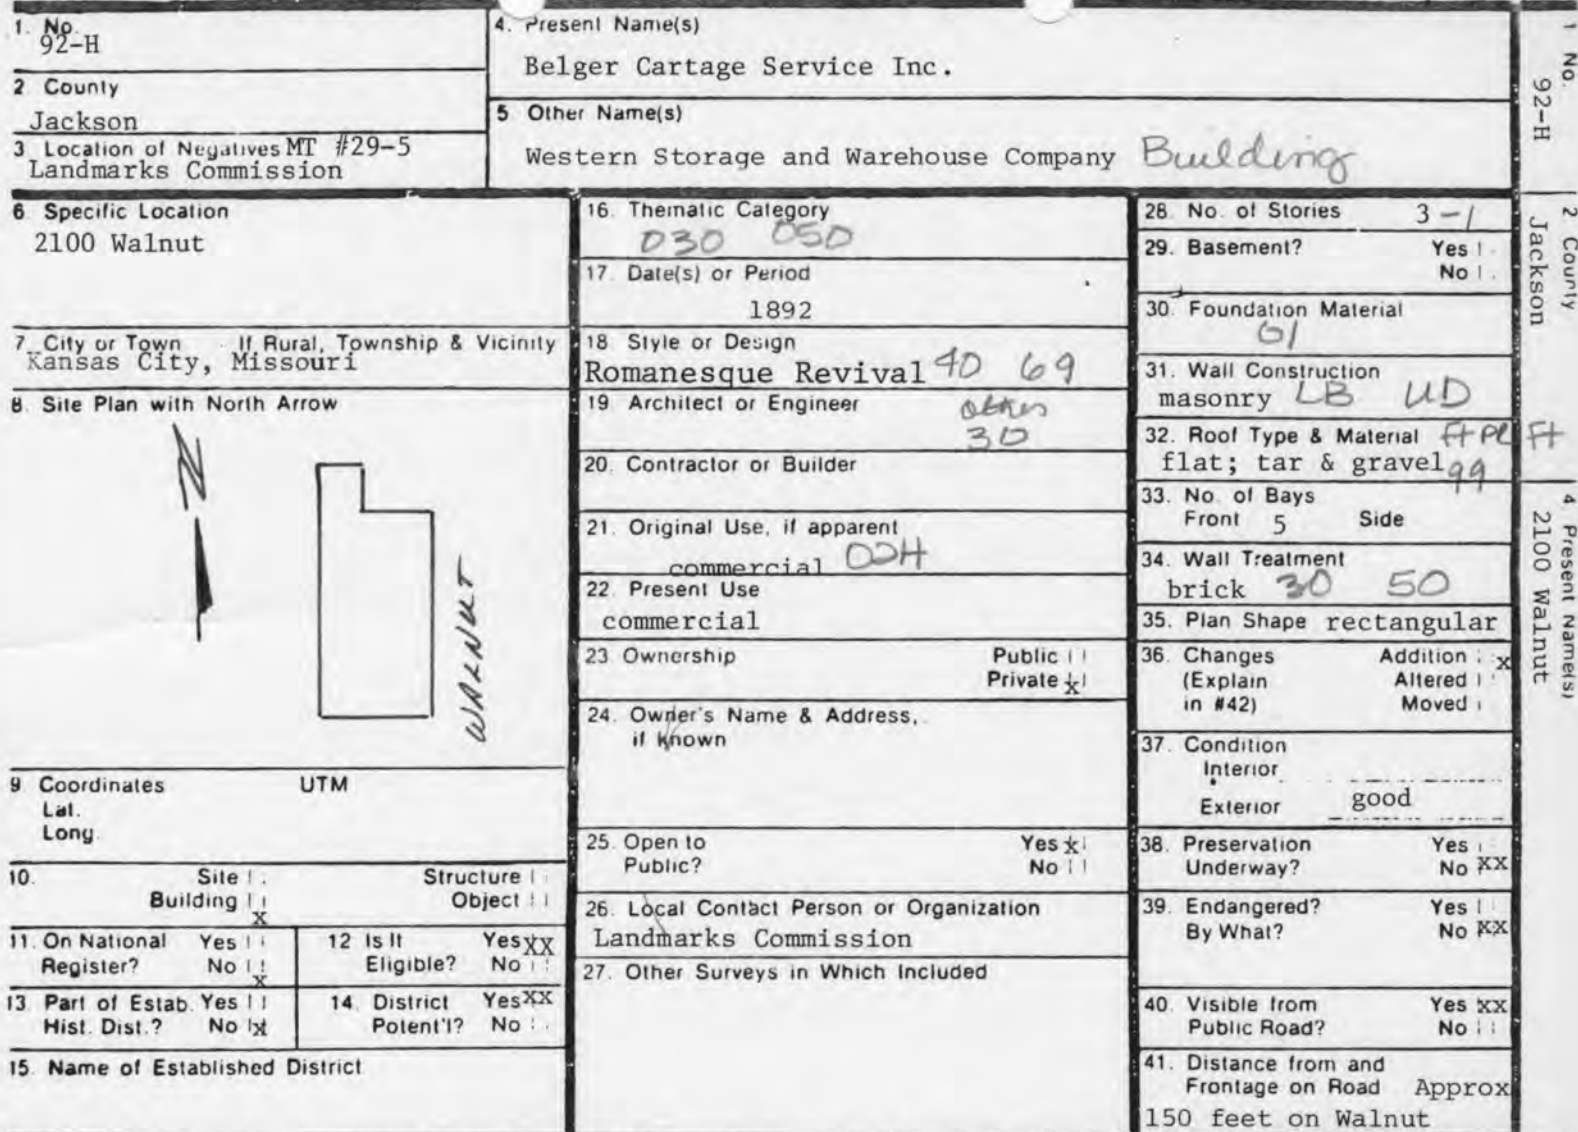 1. No.
92-H
2 County
Jackson
3 Location of Negatives MT #29-5
Landmarks Commission
4. Present Name(s)
Belger Cartage Service Inc.
5 Other Name(s)
Western Storage and Warehouse Company Building
6 Specific Location
2100 Walnut
7 City or Town If Rural, Township & Vicinity
Kansas City, Missouri
8. Site Plan with North Arrow
N
WALNUT
9 Coordinates UTM
Lat.
Long.
10. Site Structure
Building x Object
11. On National Yes
Register? No x
12 Is It Yes xx
Eligible? No
13. Part of Estab. Yes
Hist. Dist.? No x
14. District Yes xx
Potent'l? No
15. Name of Established District
16. Thematic Category
030 050
17. Date(s) or Period
1892
18. Style or Design
Romanesque Revival 40 69
19. Architect or Engineer other
30
20. Contractor or Builder
21. Original Use, if apparent
commercial 02H
22. Present Use
commercial
23 Ownership Public
Private x
24. Owner's Name & Address,
if known
25. Open to Yes x
Public? No
26. Local Contact Person or Organization
Landmarks Commission
27. Other Surveys in Which Included
28. No. of Stories 3-1
29. Basement? Yes
No
30. Foundation Material
01
31. Wall Construction
masonry LB UD
32. Roof Type & Material Ft PL Ft
flat; tar & gravel 99
33. No. of Bays
Front 5 Side
34. Wall Treatment
brick 30 50
35. Plan Shape rectangular
36. Changes Addition x
(Explain Altered
in #42) Moved
37. Condition
Interior
Exterior good
38. Preservation Yes
Underway? No xx
39. Endangered? Yes
By What? No xx
40. Visible from Yes xx
Public Road? No
41. Distance from and
Frontage on Road Approx
150 feet on Walnut
1 No.
92-H
2 County
Jackson
4 Present Name(s)
2100 Walnut